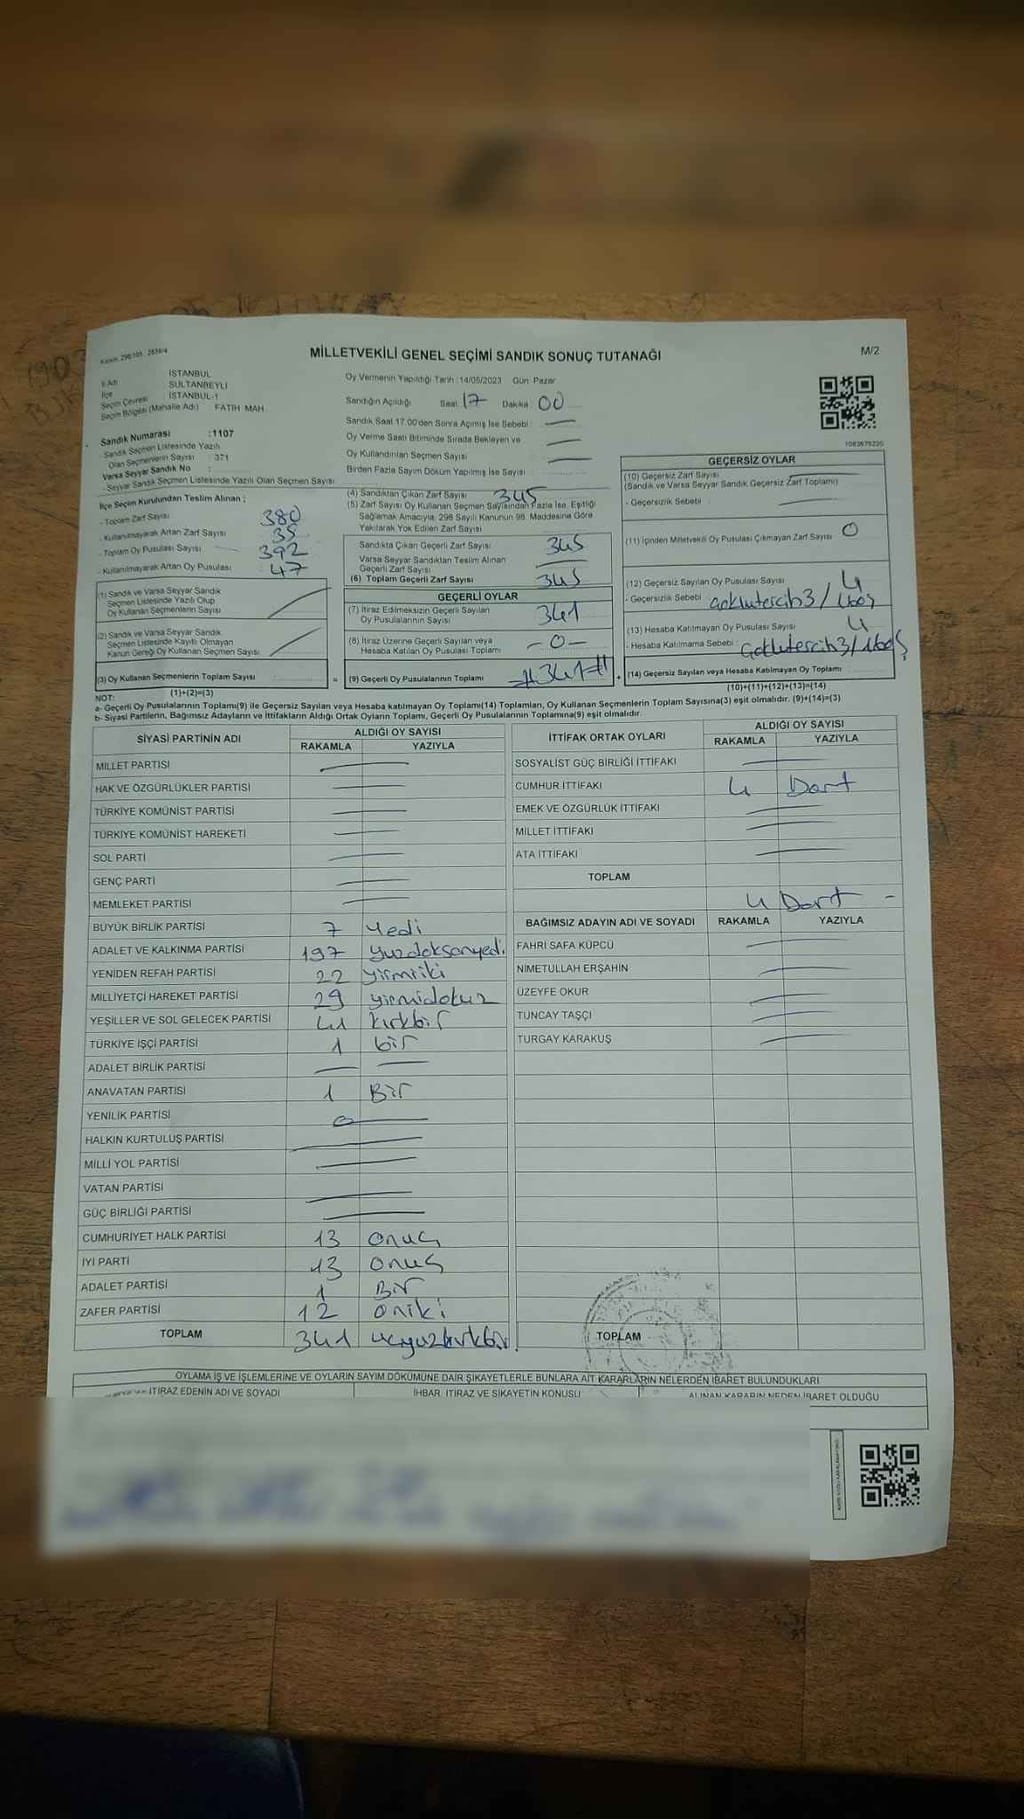 MİLLETVEKİLİ GENEL SEÇİMİ SANDIK SONUÇ TUTANAĞI
M/2
İli Adı : İSTANBUL
İlçe : SULTANBEYLİ
Seçim Çevresi : İSTANBUL-1
Seçim Bölgesi (Mahalle Adı) FATİH MAH.
Sandık Numarası :1107
- Sandık Seçmen Listesinde Yazılı
Olan Seçmenlerin Sayısı : 371
Varsa Seyyar Sandık No :
- Seyyar Sandık Seçmen Listesinde Yazılı Olan Seçmen Sayısı
Oy Vermenin Yapıldığı Tarih :14/05/2023 Gün: Pazar
Sandığın Açıldığı Saat 17 Dakika 00
Sandık Saat 17.00'den Sonra Açılmış İse Sebebi :
Oy Verme Saati Bitiminde Sırada Bekleyen ve
Oy Kullandırılan Seçmen Sayısı
Birden Fazla Sayım Döküm Yapılmış İse Sayısı
İlçe Seçim Kurulundan Teslim Alınan ;
- Toplam Zarf Sayısı 380
- Kullanılmayarak Artan Zarf Sayısı 35
- Toplam Oy Pusulası Sayısı 392
- Kullanılmayarak Artan Oy Pusulası : 47
(1) Sandık ve Varsa Seyyar Sandık
Seçmen Listesinde Yazılı Olup
Oy Kullanan Seçmenlerin Sayısı
(2) Sandık ve Varsa Seyyar Sandık
Seçmen Listesinde Kayıtlı Olmayan
Kanun Gereği Oy Kullanan Seçmen Sayısı
(3) Oy Kullanan Seçmenlerin Toplam Sayısı
(1)+(2)=(3)
(4) Sandıktan Çıkan Zarf Sayısı 345
(5) Zarf Sayısı Oy Kullanan Seçmen Sayısından Fazla İse, Eşitliği
Sağlamak Amacıyla, 298 Sayılı Kanunun 98. Maddesine Göre
Yakılarak Yok Edilen Zarf Sayısı
Sandıkta Çıkan Geçerli Zarf Sayısı 345
Varsa Seyyar Sandıktan Teslim Alınan
Geçerli Zarf Sayısı
(6) Toplam Geçerli Zarf Sayısı 345
GEÇERLİ OYLAR
(7) İtiraz Edilmeksizin Geçerli Sayılan
Oy Pusulalarının Sayısı 341
(8) İtiraz Üzerine Geçerli Sayılan veya
Hesaba Katılan Oy Pusulası Toplamı -0-
= (9) Geçerli Oy Pusulalarının Toplamı #341#
GEÇERSİZ OYLAR
(10) Geçersiz Zarf Sayısı
(Sandık ve Varsa Seyyar Sandık Geçersiz Zarf Toplamı)
- Geçersizlik Sebebi
(11) İçinden Milletvekili Oy Pusulası Çıkmayan Zarf Sayısı 0
(12) Geçersiz Sayılan Oy Pusulası Sayısı 4
- Geçersizlik Sebebi
(13) Hesaba Katılmayan Oy Pusulası Sayısı 4
- Hesaba Katılmama Sebebi :
+ (14) Geçersiz Sayılan veya Hesaba Katılmayan Oy Toplamı
(10)+(11)+(12)+(13)=(14)
NOT:
a- Geçerli Oy Pusulalarının Toplamı(9) ile Geçersiz Sayılan veya Hesaba katılmayan Oy Toplam(14) Toplamları, Oy Kullanan Seçmenlerin Toplam Sayısına(3) eşit olmalıdır. (9)+(14)=(3)
b- Siyasi Partilerin, Bağımsız Adayların ve İttifakların Aldığı Ortak Oyların Toplamı, Geçerli Oy Pusulalarının Toplamına(9) eşit olmalıdır.
SİYASİ PARTİNİN ADI ALDIĞI OY SAYISI
RAKAMLA YAZIYLA
MİLLET PARTİSİ
HAK VE ÖZGÜRLÜKLER PARTİSİ
TÜRKİYE KOMÜNİST PARTİSİ
TÜRKİYE KOMÜNİST HAREKETİ
SOL PARTİ
GENÇ PARTİ
MEMLEKET PARTİSİ
BÜYÜK BİRLİK PARTİSİ 7 Yedi
ADALET VE KALKINMA PARTİSİ 197 yuzdoksanyedi
YENİDEN REFAH PARTİSİ 22 yirmiiki
MİLLİYETÇİ HAREKET PARTİSİ 29 yirmidokuz
YEŞİLLER VE SOL GELECEK PARTİSİ 41 kırkbir
TÜRKİYE İŞÇİ PARTİSİ 1 bir
ADALET BİRLİK PARTİSİ
ANAVATAN PARTİSİ 1 Bir
YENİLİK PARTİSİ
HALKIN KURTULUŞ PARTİSİ
MİLLİ YOL PARTİSİ
VATAN PARTİSİ
GÜÇ BİRLİĞİ PARTİSİ
CUMHURİYET HALK PARTİSİ 13 onuç
İYİ PARTİ 13 onuç
ADALET PARTİSİ 1 Bir
ZAFER PARTİSİ 12 oniki
TOPLAM 341 ucyuzkırkbir
İTTİFAK ORTAK OYLARI ALDIĞI OY SAYISI
RAKAMLA YAZIYLA
SOSYALİST GÜÇ BİRLİĞİ İTTİFAKI
CUMHUR İTTİFAKI 4 Dört
EMEK VE ÖZGÜRLÜK İTTİFAKI
MİLLET İTTİFAKI
ATA İTTİFAKI
TOPLAM 4 Dört -
BAĞIMSIZ ADAYIN ADI VE SOYADI RAKAMLA YAZIYLA
FAHRİ SAFA KÜPCÜ
NİMETULLAH ERŞAHİN
ÜZEYFE OKUR
TUNCAY TAŞÇI
TURGAY KARAKUŞ
TOPLAM
OYLAMA İŞ VE İŞLEMLERİNE VE OYLARIN SAYIM DÖKÜMÜNE DAİR ŞİKAYETLERLE BUNLARA AİT KARARLARIN NELERDEN İBARET BULUNDUKLARI
İTİRAZ EDENİN ADI VE SOYADI İHBAR, İTİRAZ VE ŞİKAYETİN KONUSU ALINAN KARARIN NEDEN İBARET OLDUĞU